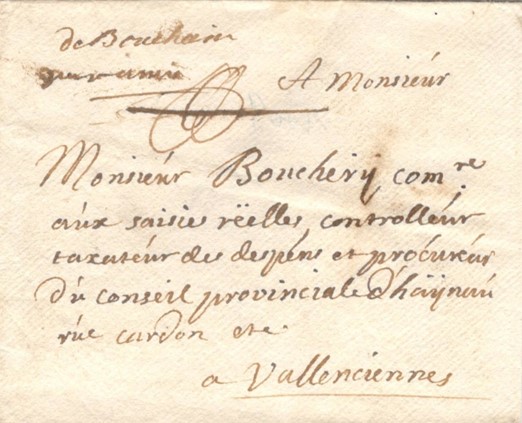 de Bouchain
par amie
A Monsieur
Monsieur Bouchery com.re
aux saisie rëelles controlleur
taxateur des despens et procureur
du conseil provinciale d'haÿnau
rue cardon etc.
a Vallenciennes